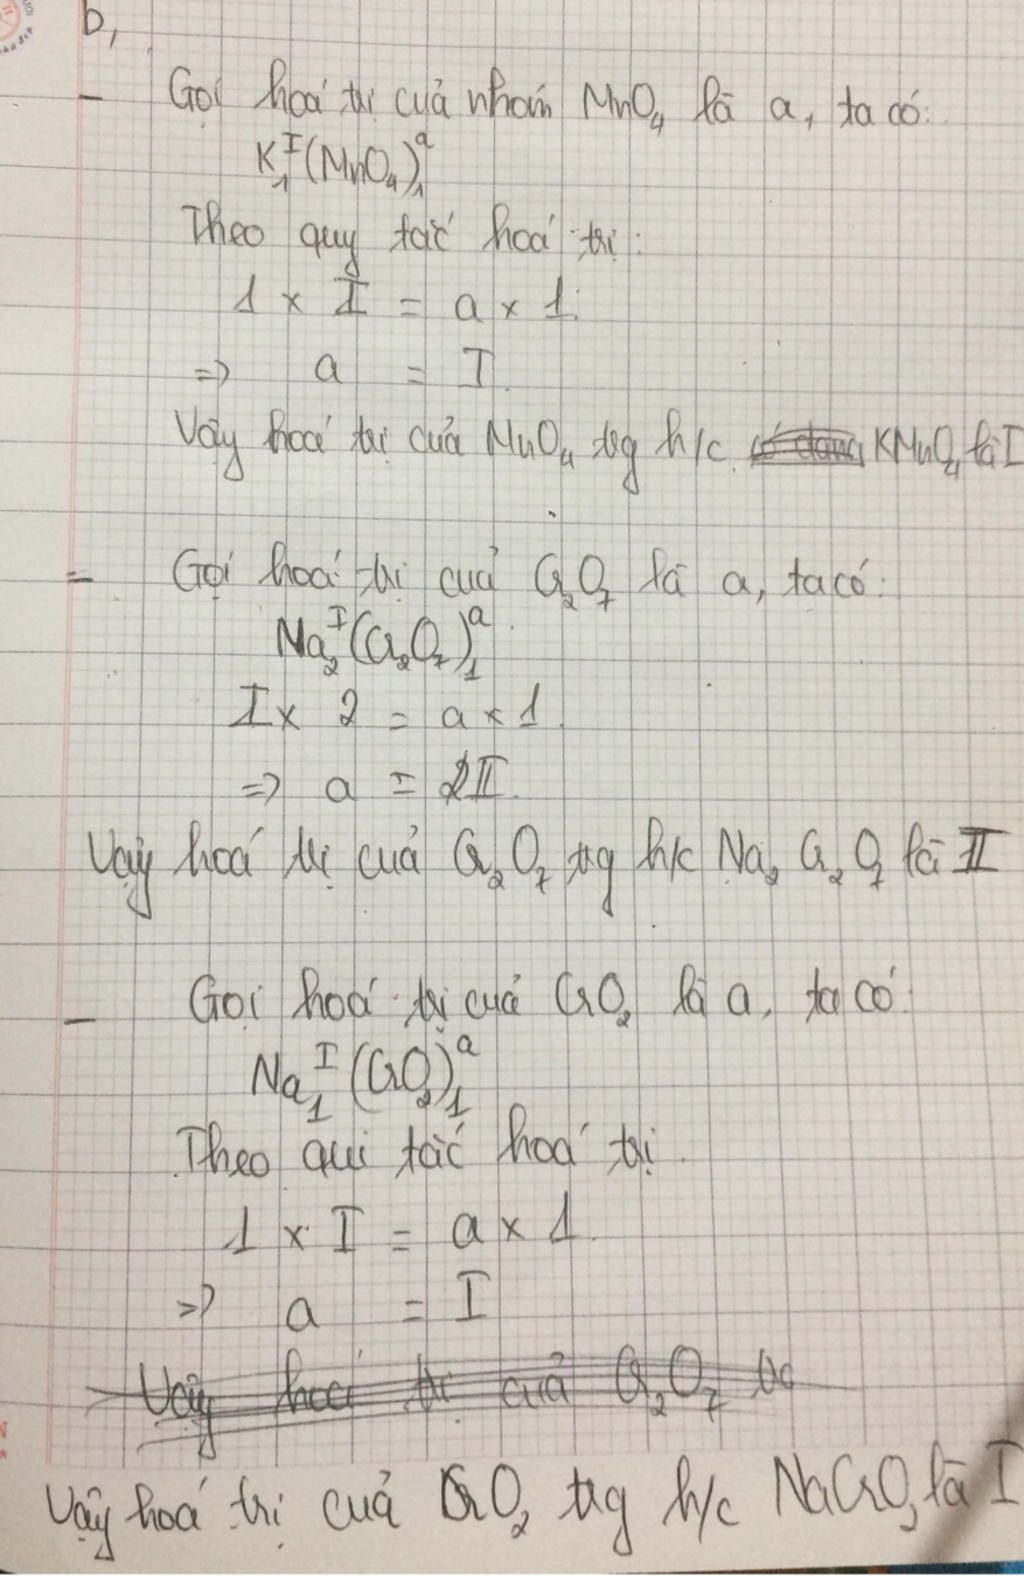 b,
- Gọi hoá trị của nhóm MnO₄ là a, ta có:
K₁ᴵ(MnO₄)₁ᵃ
Theo quy tắc hoá trị:
1 x I = a x 1.
=> a = I.
Vậy hoá trị của MnO₄ trg h/c KMnO₄ là I
- Gọi hoá trị của Cr₂O₇ là a, ta có:
Na₂ᴵ(Cr₂O₇)₁ᵃ
I x 2 = a x 1.
=> a = II.
Vậy hoá trị của Cr₂O₇ trg h/c Na₂Cr₂O₇ là II
- Gọi hoá trị của CrO₂ là a, ta có:
Na₁ᴵ(CrO₂)₁ᵃ
Theo qui tắc hoá trị.
1 x I = a x 1.
=> a = I
Vậy hoá trị của Cr₂O₇
Vậy hoá trị của CrO₂ trg h/c NaCrO₂ là I